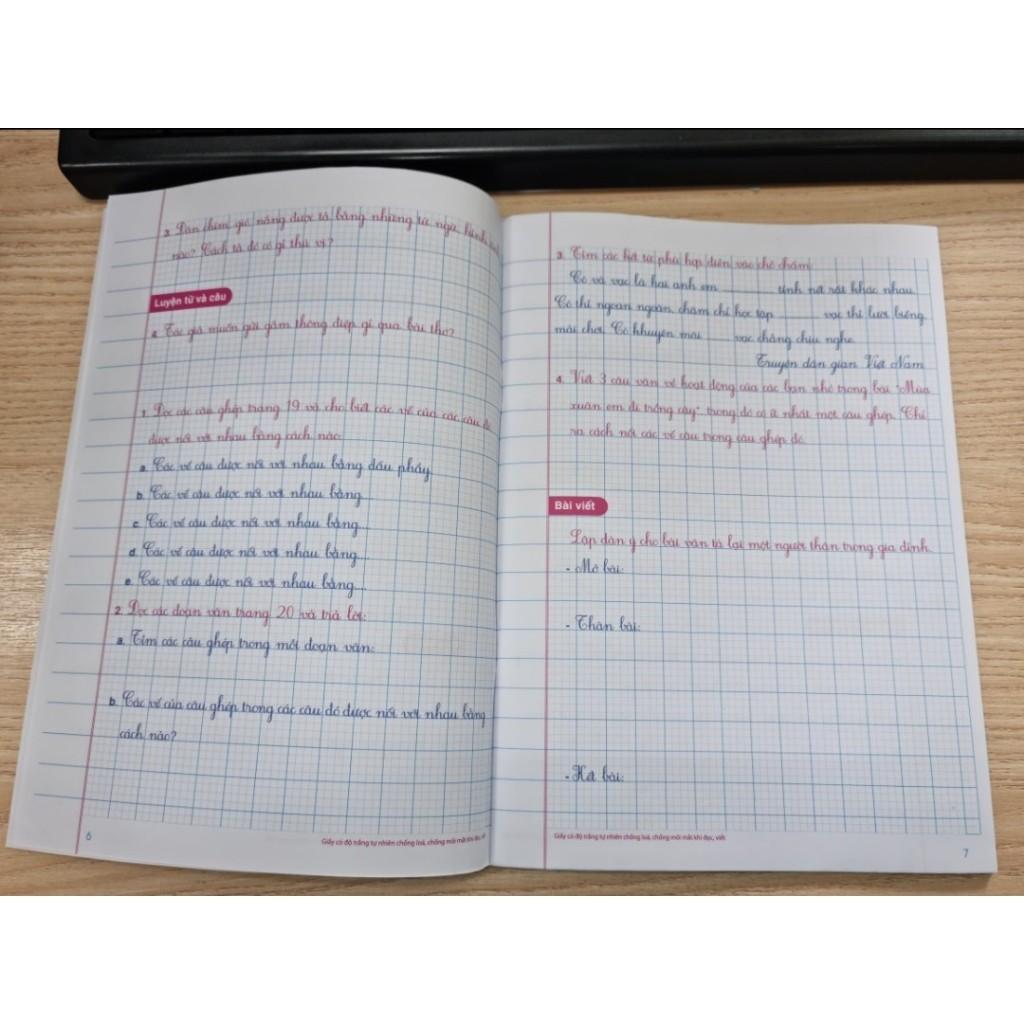 3. Đàn chim, gió, nắng được tả bằng những từ ngữ, hình
nào? Cách tả đó có gì thú vị?
Luyện từ và câu
e. Tác giả muốn gửi gắm thông điệp gì qua bài thơ?
1. Đọc các câu ghép trang 19 và cho biết các vế của các câu đó
được nối với nhau bằng cách nào:
a. Các vế câu được nối với nhau bằng dấu phẩy.
b. Các vế câu được nối với nhau bằng...
c. Các vế câu được nối với nhau bằng...
d. Các vế câu được nối với nhau bằng...
e. Các vế câu được nối với nhau bằng...
2. Đọc các đoạn văn trang 20 và trả lời:
a. Tìm các câu ghép trong mỗi đoạn văn:
b. Các vế của câu ghép trong các câu đó được nối với nhau bằng
cách nào?
6
Giấy có độ trắng tự nhiên chống loá, chống mỏi mắt khi đọc, viết
3. Tìm các kết từ phù hợp điền vào chỗ chấm:
Cò và vạc là hai anh em ........ tính nết rất khác nhau.
Cò thì ngoan ngoãn, chăm chỉ học tập ........ vạc thì lười biếng
mải chơi. Cò khuyên mãi ........ vạc chẳng chịu nghe.
Truyện dân gian Việt Nam
4. Viết 3 câu văn về hoạt động của các bạn nhỏ trong bài "Mùa
xuân em đi trồng cây" trong đó có ít nhất một câu ghép. Chỉ
ra cách nối các vế câu trong câu ghép đó.
Bài viết
Lập dàn ý cho bài văn tả lại một người thân trong gia đình.
- Mở bài:
- Thân bài:
- Kết bài:
Giấy có độ trắng tự nhiên chống loá, chống mỏi mắt khi đọc, viết
7